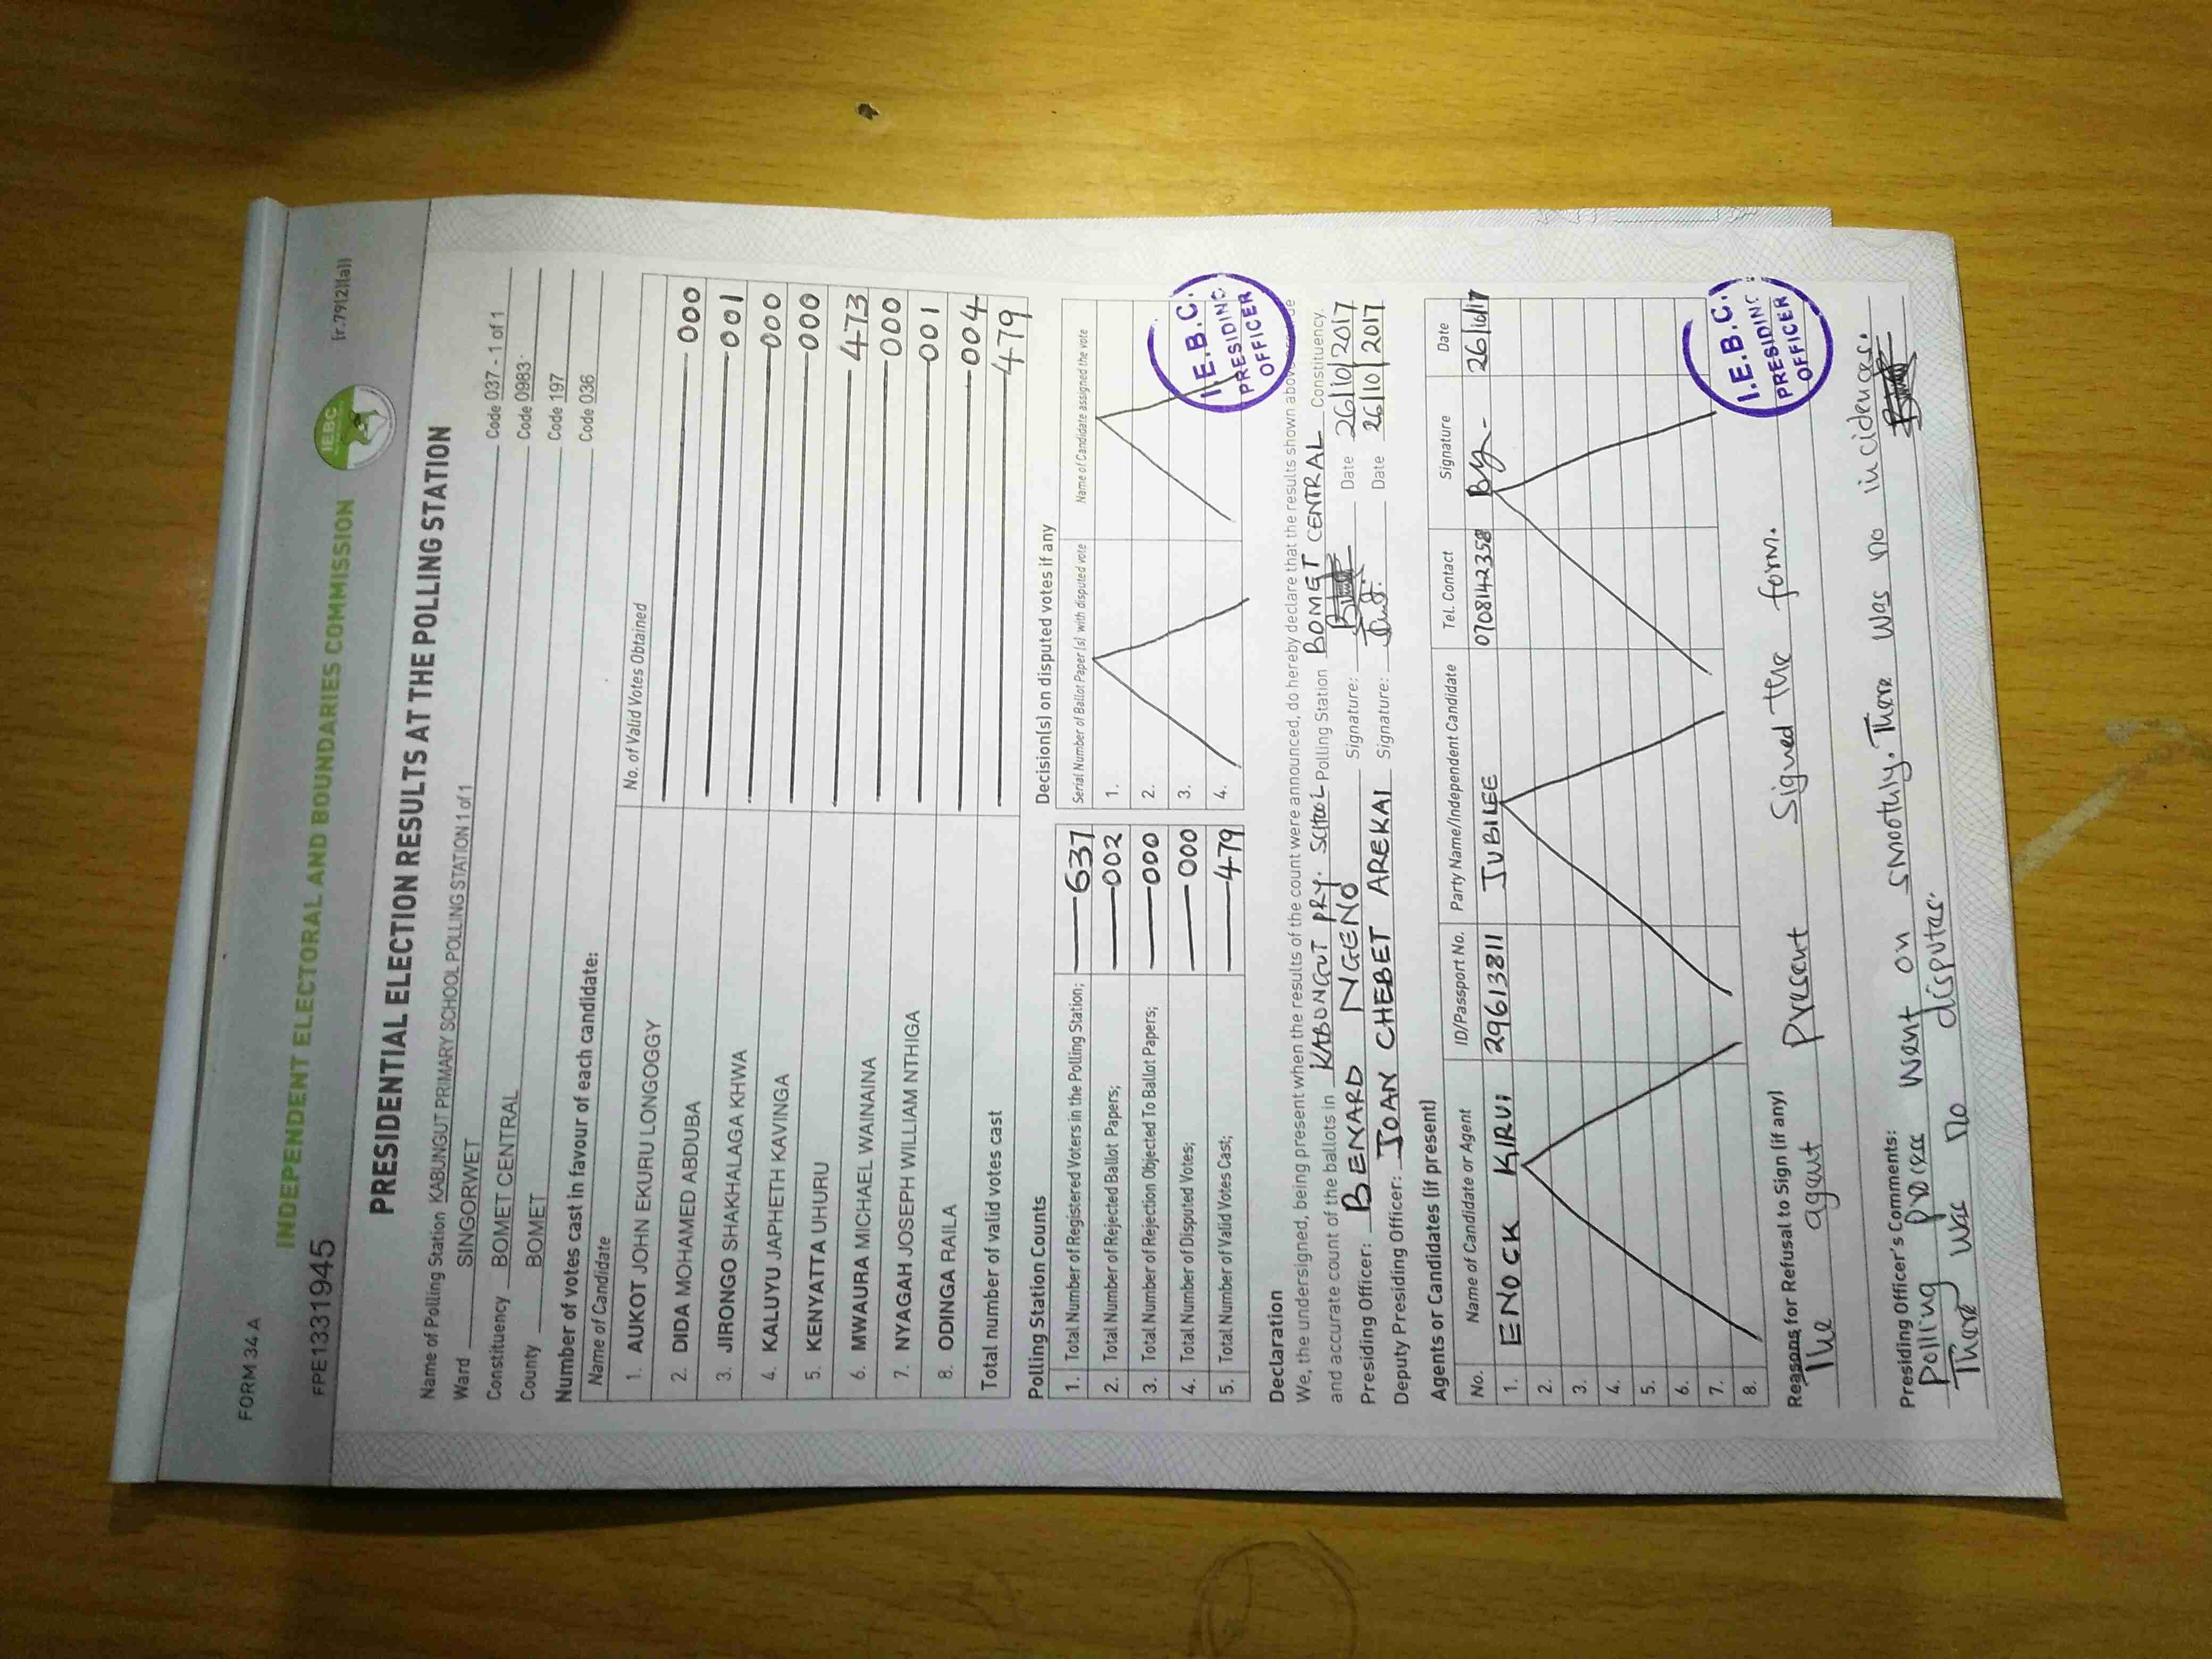 FORM 34A
[r.79(2)(a)]
IEBC
INDEPENDENT ELECTORAL AND BOUNDARIES COMMISSION
FPE1331945
PRESIDENTIAL ELECTION RESULTS AT THE POLLING STATION
Name of Polling Station KABUNGUT PRIMARY SCHOOL POLLING STATION 1 of 1 Code 037 - 1 of 1
Ward SINGORWET Code 0983
Constituency BOMET CENTRAL Code 197
County BOMET Code 036
Number of votes cast in favour of each candidate:
Name of Candidate No. of Valid Votes Obtained
1. AUKOT JOHN EKURU LONGOGGY 000
2. DIDA MOHAMED ABDUBA 001
3. JIRONGO SHAKHALAGA KHWA 000
4. KALUYU JAPHETH KAVINGA 000
5. KENYATTA UHURU 473
6. MWAURA MICHAEL WAINAINA 000
7. NYAGAH JOSEPH WILLIAM NTHIGA 001
8. ODINGA RAILA 004
Total number of valid votes cast 479
Polling Station Counts Decision(s) on disputed votes if any
1. Total Number of Registered Voters in the Polling Station; 637 Serial Number of Ballot Paper(s) with disputed vote Name of Candidate assigned the vote
2. Total Number of Rejected Ballot Papers; 002 1.
3. Total Number of Rejection Objected To Ballot Papers; 000 2.
4. Total Number of Disputed Votes; 000 3.
5. Total Number of Valid Votes Cast; 479 4.
I.E.B.C. PRESIDING OFFICER
Declaration
We, the undersigned, being present when the results of the count were announced, do hereby declare that the results shown above are true
and accurate count of the ballots in KABUNGUT PRY. SCHOOL Polling Station BOMET CENTRAL Constituency.
Presiding Officer: BENARD NGENO Signature: Date 26/10/2017
Deputy Presiding Officer: JOAN CHEBET AREKAI Signature: Date 26/10/2017
Agents or Candidates (if present)
No. Name of Candidate or Agent ID/Passport No. Party Name/Independent Candidate Tel. Contact Signature Date
1. ENOCK KIRUI 29613811 JUBILEE 0708142358 26/10/17
2.
3.
4.
5.
6.
7.
8.
I.E.B.C. PRESIDING OFFICER
Reasons for Refusal to Sign (if any)
The agent Present Signed the form.
Presiding Officer's Comments:
Polling went on smootuly. There was no incidences.
There was no disputas.